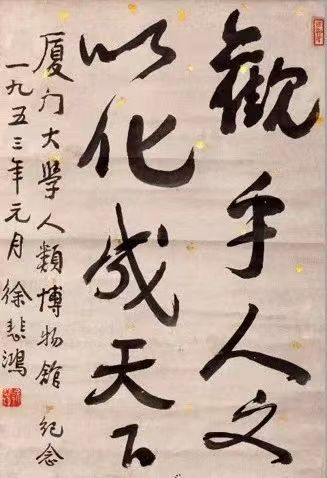 觀乎人文
以化成天下
厦门大學人類博物館 紀念
一九五三年元月 徐悲鴻